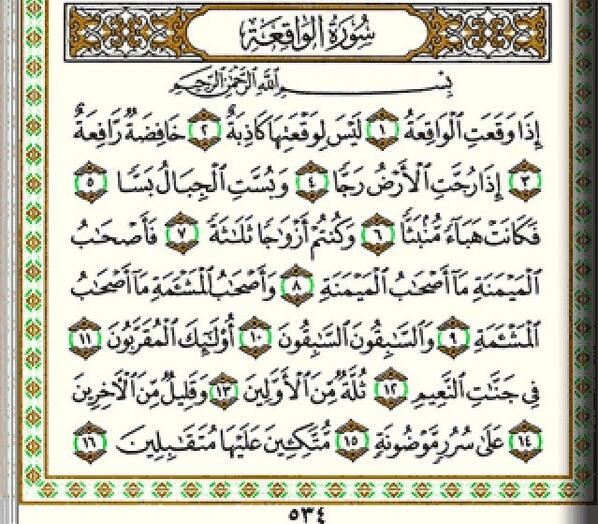 سُورَةُ الوَاقِعَة
بِسْمِ اللَّهِ الرَّحْمَٰنِ الرَّحِيمِ
إِذَا وَقَعَتِ الْوَاقِعَةُ ١ لَيْسَ لِوَقْعَتِهَا كَاذِبَةٌ ٢ خَافِضَةٌ رَّافِعَةٌ
٣ إِذَا رُجَّتِ الْأَرْضُ رَجًّا ٤ وَبُسَّتِ الْجِبَالُ بَسًّا ٥
فَكَانَتْ هَبَاءً مُّنۢبَثًّا ٦ وَكُنتُمْ أَزْوَاجًا ثَلَاثَةً ٧ فَأَصْحَابُ
الْمَيْمَنَةِ مَا أَصْحَابُ الْمَيْمَنَةِ ٨ وَأَصْحَابُ الْمَشْئَمَةِ مَا أَصْحَابُ
الْمَشْئَمَةِ ٩ وَالسَّابِقُونَ السَّابِقُونَ ١٠ أُولَٰئِكَ الْمُقَرَّبُونَ ١١
فِي جَنَّاتِ النَّعِيمِ ١٢ ثُلَّةٌ مِّنَ الْأَوَّلِينَ ١٣ وَقَلِيلٌ مِّنَ الْآخِرِينَ
١٤ عَلَىٰ سُرُرٍ مَّوْضُونَةٍ ١٥ مُّتَّكِئِينَ عَلَيْهَا مُتَقَابِلِينَ ١٦
٥٣٤